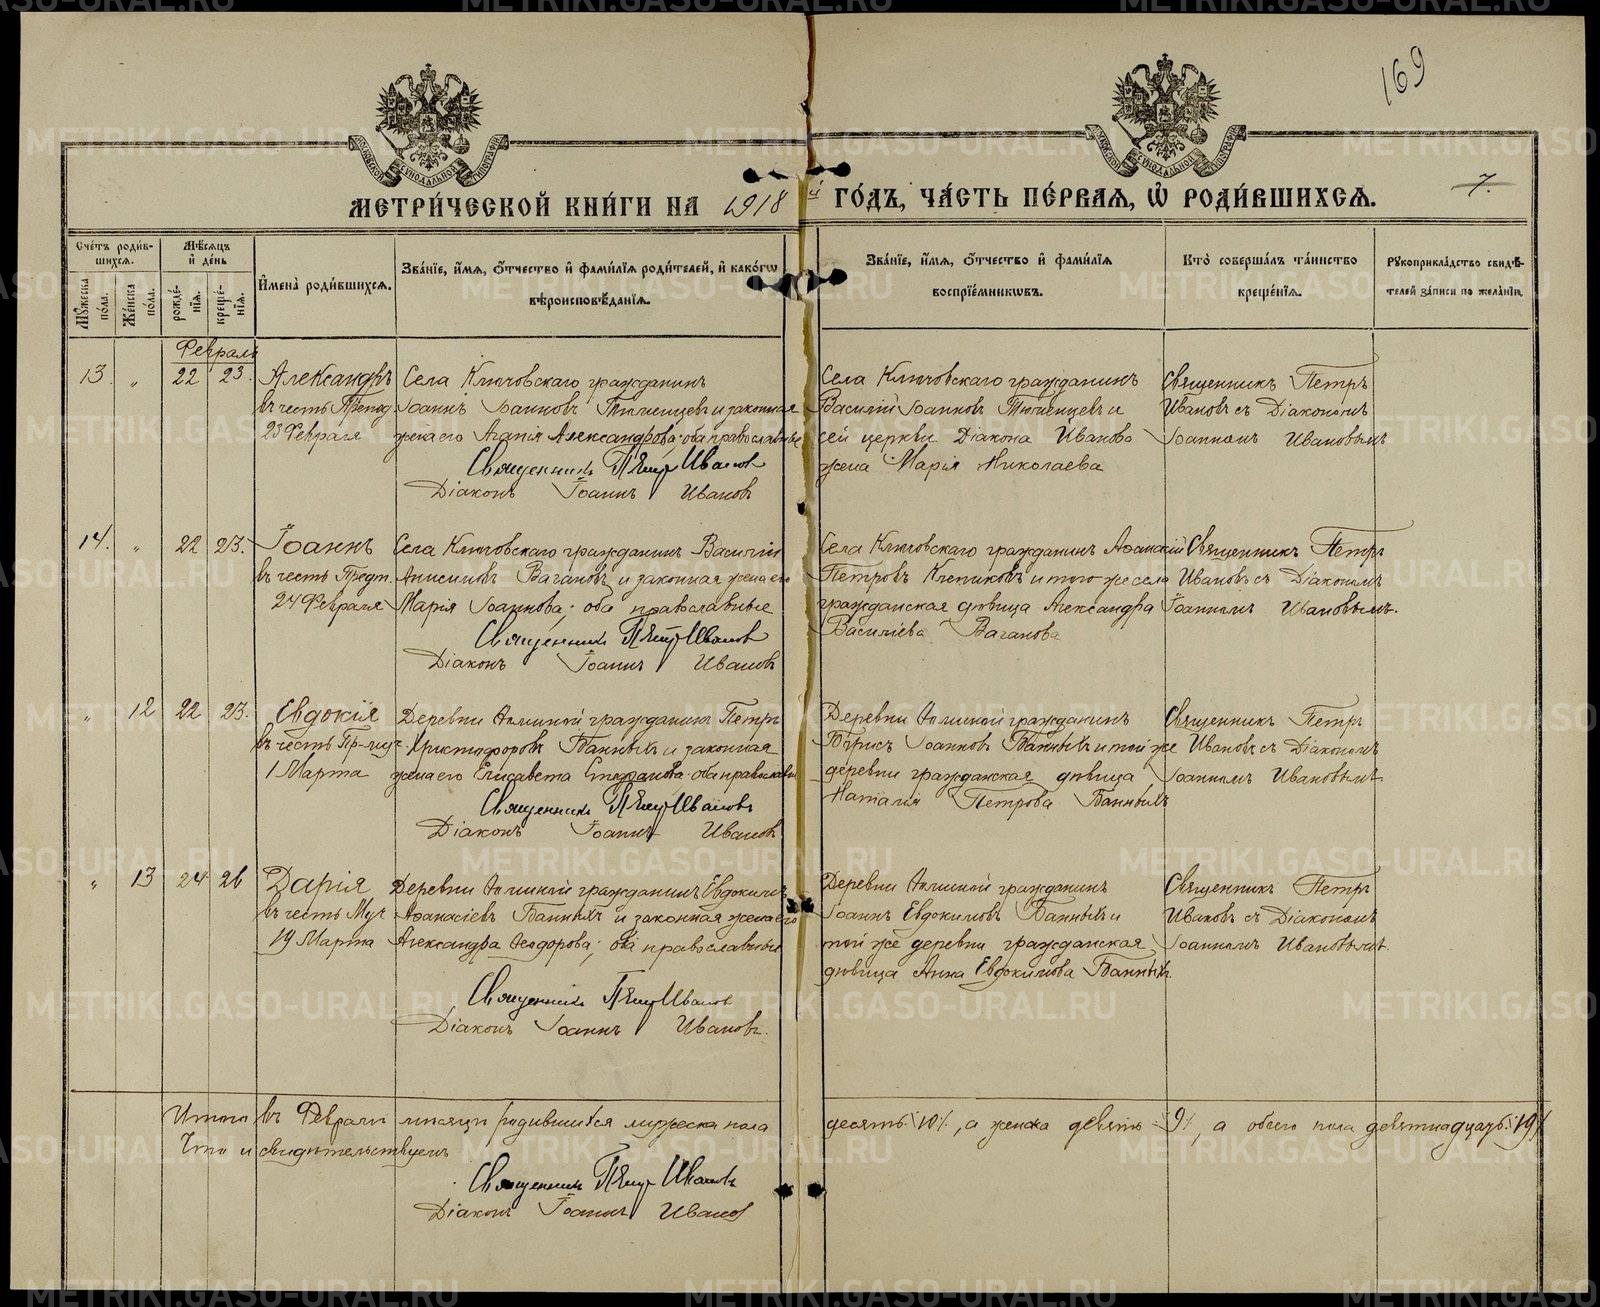 169
МОСКОВСКОЙ СѴНОДАЛЬНОЙ ТИПОГРАФІИ
МОСКОВСКОЙ СѴНОДАЛЬНОЙ ТИПОГРАФІИ
МЕТРИ́ЧЕСКОЙ КНИ́ГИ НА 1918 й ГО́ДЪ, ЧА́СТЬ ПЕ́РВАЯ, Ѡ РОДИ́ВШИХСЯ.
7.
Сче́тъ роди́в-
шихся.
Мꙋ́жеска по́ла.
Же́нска по́ла.
Мѣ́сяцъ и҆ де́нь
рожде́-нїя.
креще́-нїя.
И҆мена̀ роди́вшихся.
Зва́нїе, и҆́мя, ѻ҆́тчество и҆ фамі́лїя роди́телей, и҆ како́гѡ
вѣроисповѣ́данїя.
Зва́нїе, и҆́мя, ѻ҆́тчество и҆ фамі́лїя
воспрїе́мникѡвъ.
Кто̀ соверша́лъ та́инство
креще́нїя.
Рꙋкоприкла́дство свидѣ́-
телей за́писи по жела́нїю.
Февраль
13. " 22 23. Александръ Села Ключовскаго гражданинъ
въ честь Препод. Іоаннъ Іоанновъ Тюменцевъ и законная
23 Февраля жена его Агапія Александрова; оба православные
Священникъ Петръ Ивановъ
Діаконъ Іоаннъ Ивановъ
Села Ключовскаго гражданинъ
Василій Іоанновъ Тюменцевъ и
сей церкви Діакона Иванова
жена Марія Николаева
Священникъ Петръ
Ивановъ съ Діакономъ
Іоанномъ Ивановымъ
14. " 22 23. Іоаннъ Села Ключовскаго гражданинъ Василій
въ честь Предт. Анисимовъ Вагановъ и законная жена его
24 Февраля Марія Іоаннова; оба православные
Священникъ Петръ Ивановъ
Діаконъ Іоаннъ Ивановъ
Села Ключовскаго гражданинъ Аѳанасій
Петровъ Клепиковъ и того же села
гражданская дѣвица Александра
Василіева Ваганова
Священникъ Петръ
Ивановъ съ Діакономъ
Іоанномъ Ивановымъ.
" 12 22 23. Евдокія Деревни гражданинъ Петръ
въ честь Пр-муч. Христофоровъ Банныхъ и законная
1 Марта жена его Елисавета Стефанова; оба православн
Священникъ Петръ Ивановъ
Діаконъ Іоаннъ Ивановъ
Деревни гражданинъ
Борисъ Іоанновъ Банныхъ и той же
деревни гражданская дѣвица
Наталія Петрова Банныхъ
Священникъ Петръ
Ивановъ съ Діакономъ
Іоанномъ Ивановымъ
" 13 24 26 Дарія Деревни гражданинъ Евдокимъ
въ честь Муч. Аѳанасіевъ Банныхъ и законная жена его
19 Марта Александра Ѳеодорова; оба православные
Священникъ Петръ Ивановъ
Діаконъ Іоаннъ Ивановъ.
Деревни гражданинъ
Іоаннъ Евдокимовъ Банныхъ и
той же деревни гражданская
дѣвица Анна Евдокимова Банныхъ.
Священникъ Петръ
Ивановъ съ Діакономъ
Іоанномъ Ивановымъ.
Итого въ Февралѣ мѣсяцѣ родившихся мужеска пола десять /10/, а женска девять /9/, а обоего пола девятнадцать /19/
Что и свидѣтельствуемъ
Священникъ Петръ Ивановъ
Діаконъ Іоаннъ Ивановъ
METRIKI.GASO-URAL.RU